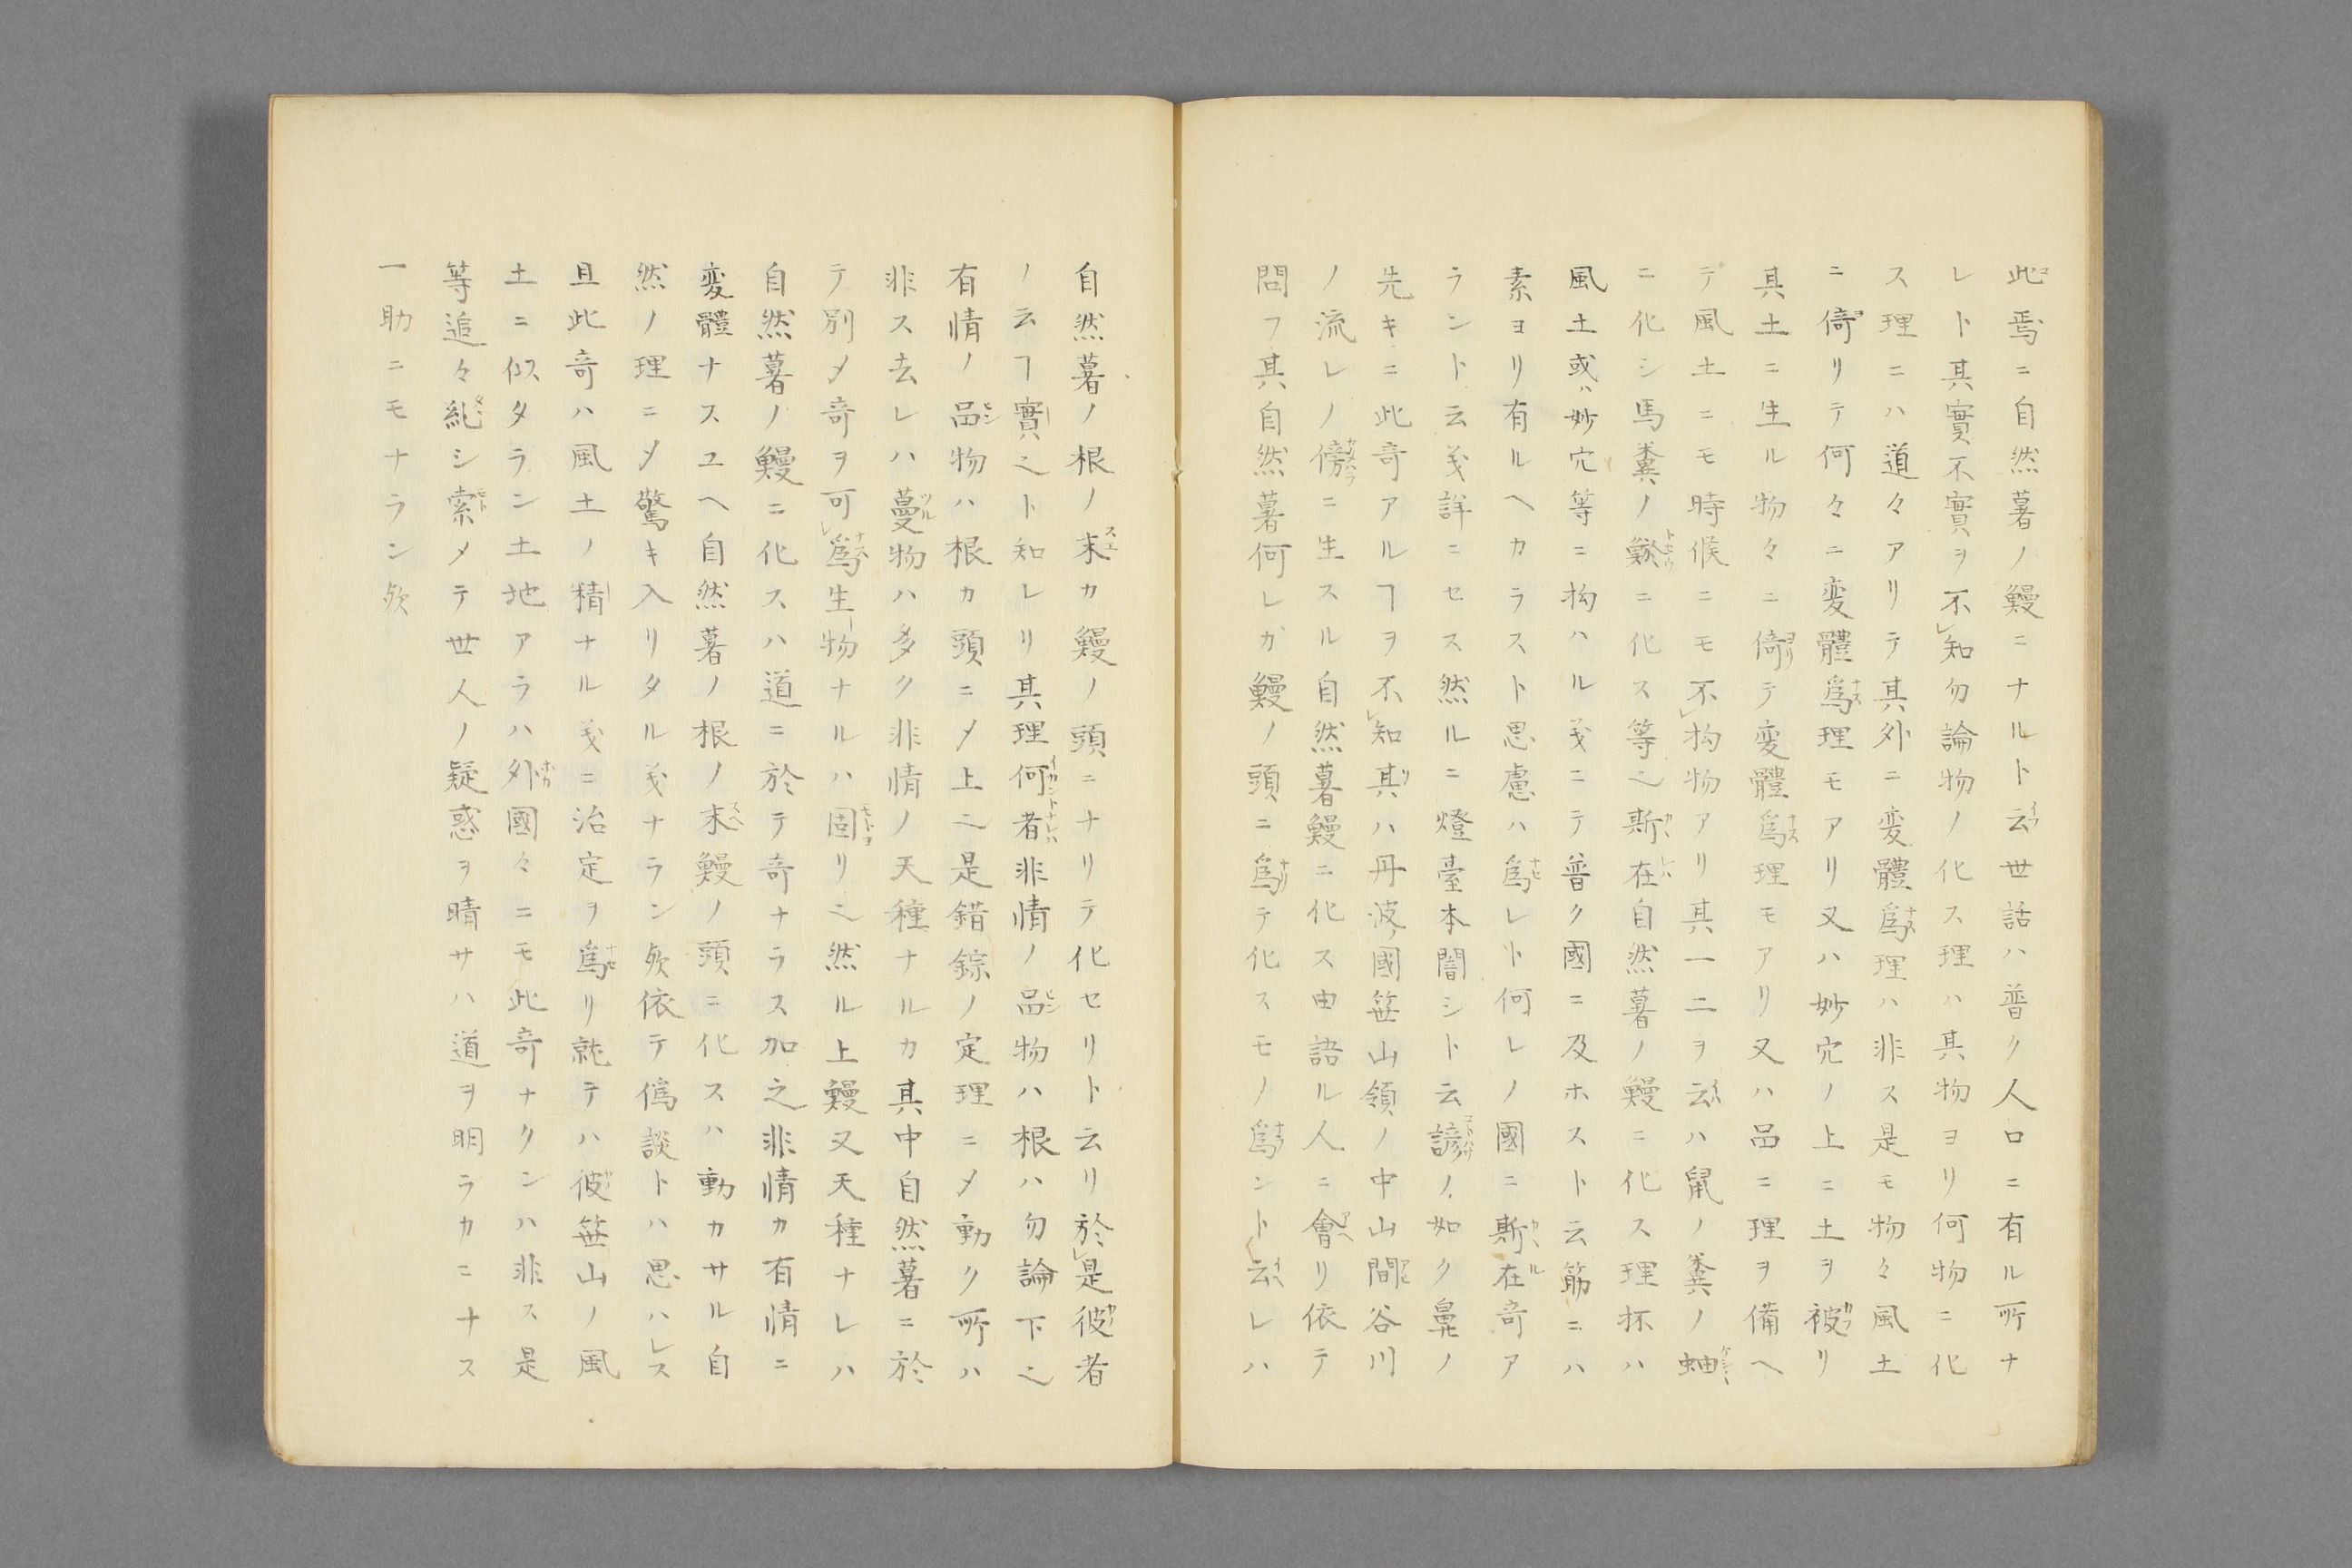 此焉ニ自然薯ノ鰻ニナルト云世話ハ普ク人口ニ有ル所ナ
レト其實不實ヲ不レ知勿論物ノ化ス理ハ其物ヨリ何物ニ化
ス理ニハ道々アリテ其外ニ変體爲理ハ非ス是モ物々風土
ニ倚リテ何々ニ変體爲理モアリ又ハ妙穴ノ上ニ土ヲ被リ
其土ニ生ル物々ニ倚テ変體爲理モアリ又ハ品ニ理ヲ備ヘ
テ風土ニモ時候ニモ不レ构物アリ其一二ヲ云ハ鼠ノ糞ノ蚰
ニ化シ馬糞ノ鰍ニ化ス等〻斯在自然薯ノ鰻ニ化ス理抔ハ
風土或ハ妙穴等ニ构ハル義ニテ普ク國ニ及ホスト云筋ニハ
素ヨリ有ルヘカラスト思慮ハ爲レト何レノ國ニ斯在竒ア
ラント云義詳ニセス然ルニ燈臺本闇シト云諺ノ如ク鼻ノ
先キニ此竒アルヿヲ不レ知其ハ丹波國笹山領ノ中山間谷川
ノ流レノ傍ニ生スル自然薯鰻ニ化ス由語ル人ニ會リ依テ
問フ其自然薯何レカ鰻ノ頭ニ爲テ化スモノ爲ント云レハ
自然薯ノ根ノ末カ鰻ノ頭ニナリテ化セリト云リ於レ是彼者
ノ云ヿ實〻ト知レリ其理何者非情ノ品物ハ根ハ勿論下〻
有情ノ品物ハ根カ頭ニ〆上〻是錯綜ノ定理ニ〆動ク所ハ
非ス去レハ蔓物ハ多ク非情ノ天種ナルカ其中自然薯ニ於
テ別〆竒ヲ可レ爲生物ナルハ固リ〻然ル上鰻又天種ナレハ
自然薯ノ鰻ニ化スハ道ニ於テ竒ナラス加之非情カ有情ニ
変體ナスユヘ自然薯ノ根ノ末鰻ノ頭ニ化スハ動カサル自
然ノ理ニ〆驚キ入リタル義ナラン欤依テ僞談トハ思ハレス
且此竒ハ風土ノ精ナル義ニ治定ヲ爲リ就テハ彼笹山ノ風
土ニ似タラン土地アラハ外國々ニモ此竒ナクンハ非ス是
等追々糺シ索メテ世人ノ疑惑ヲ晴サハ道ヲ明ラカニナス
一助ニモナラン欤